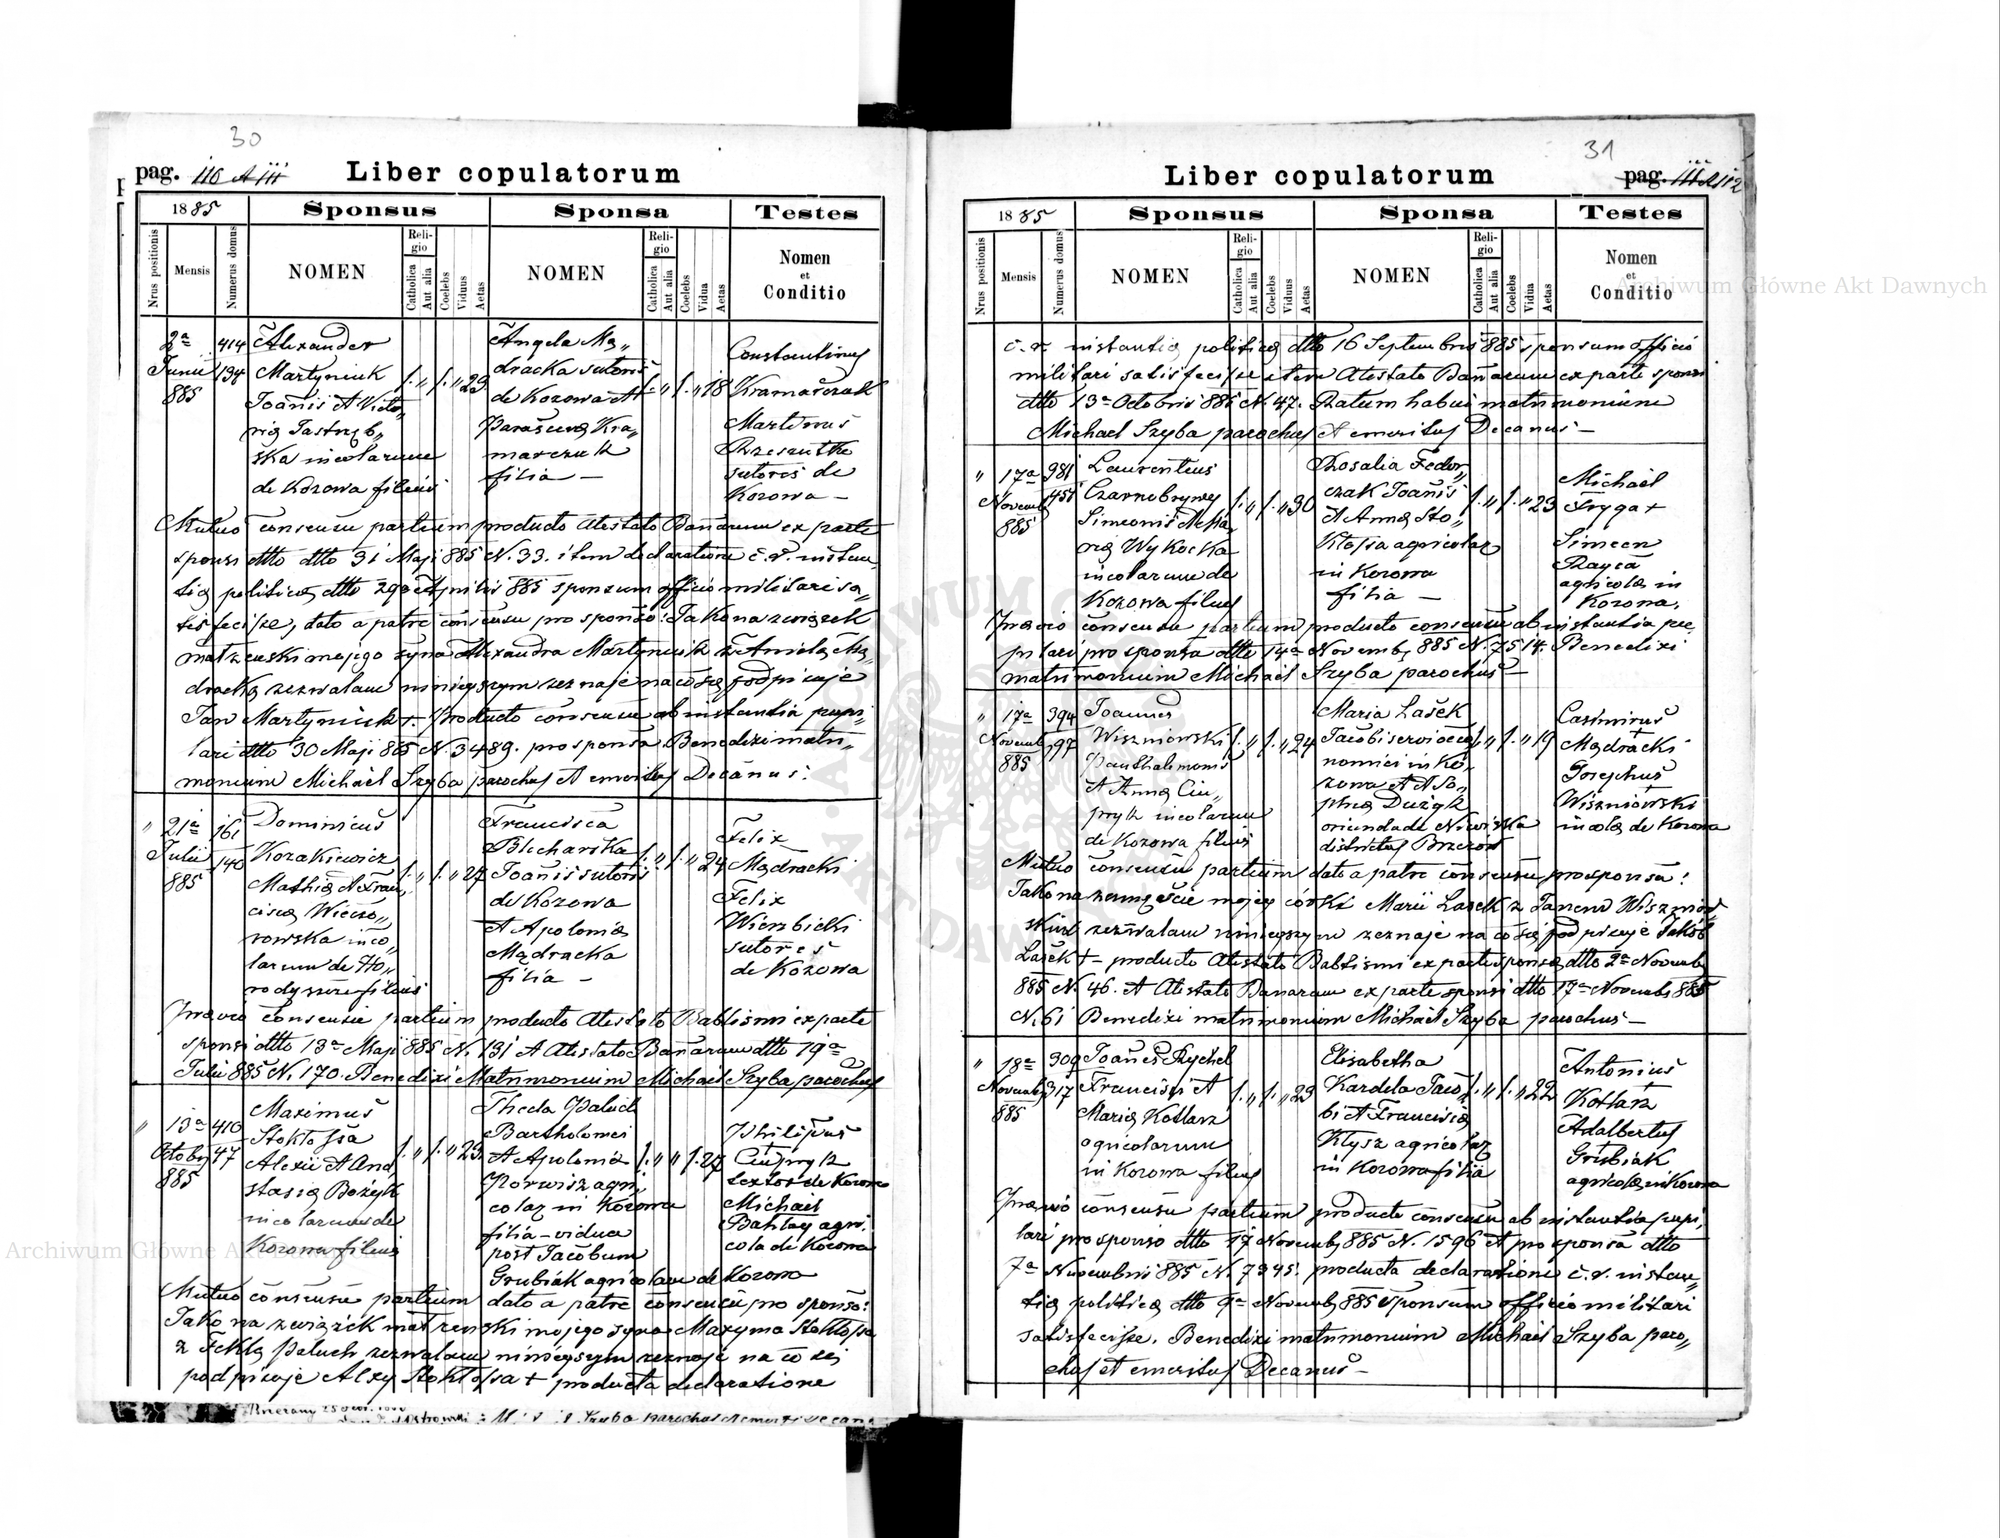 30
pag. 110 A 111
Liber copulatorum
1885
Sponsus
Sponsa
Testes
Nrus positionis
Mensis
Numerus domus
NOMEN
Religio
Catholica
Aut alia
Coelebs
Viduus
Aetas
NOMEN
Religio
Catholica
Aut alia
Coelebs
Vidua
Aetas
Nomen
et
Conditio
2a
Junii
885
414
134
Alexander
Martyniuk
Joanis A Victo„
ria Jastrzęb„
ska incolarum
de Kozowa filius
/. „ /. „ 23
Angela Mą„
dracka sutoris
de Kozowa At
Parascena Kra„
marczuk
filia —
/. „ /. 18
Constantinus
Kramarczuk
Martinus
Rzeszutko
sutores de
Kozowa —
Mutuo consensu partium producto Atestato Banarum ex parte
sponsi dtto dtto 31 Maji 885 N. 33. item declaratione c. r. instan„
tia politica dtto 29a Aprilis 885 sponsum officio militari sa„
tisfecisse, dato a patre consensu pro sponso: Jako na zwiazek
małzenski mojego syna Alexandra Martyniuk z Anielą Mą„
dracką zezwalam niniejszym zeznaje na co się podpisuje
Jan Martyniuk +. Producto consensu ab instantia pupi„
lari dtto 30 Maji 885 N. 3489. pro sponsa Benedixi matri„
monium Michael Szyba parochus et emeritus Decanus.
„
21a
Julii
885
161
140
Dominicus
Kozakiewicz
Mathia A Fran„
cisca Wieczo„
rowska inco„
larum de Ho„
rodyszcze filius
/. „ /. „ 27
Francisca
Blecharska
Joanis sutoris
de Kozowa
A Apolonia
Mądracka
filia —
/. „ /. „ 24
Felix
Mądracki
Felix
Wierzbicki
sutores
de Kozowa
Praevio consensu partium producto Atestato Babtismi ex parte
sponsi dtto 13a Maji 885 N. 131 A Atestato Banarum dtto 19a
Julii 885 N. 170. Benedixi Matrimonium Michael Szyba parochus
„
13a
Octobr
885
410
47
Maximus
Stokłossa
Alexii A And
stasia Bożyk
incolarum de
Kozowa filius
/. „ /. „ 23
Thecla Paluch
Bartholomei
A Apolonia
Porwisz agri„
colar in Kozowa
filia — vidua
post Jacobum
Grubiak agricolam de Kozowa
/. „ „ /. 27
Philipus
+
Ciupryk
textor de Kozowa
Michael
Bahlay agri„
cola de Kozowa
Mutuo consensu partium dato a patre consensu pro sponso:
Jako na zwiazek matrzenski mojego syna Maxyma Stokłossa
z Feklą Paluch zezwalam niniejszym zeznaje na co się
podpisuje Alexy Stokłossa + producta declaratione
31
Liber copulatorum
pag. 111 A 112
1885
Sponsus
Sponsa
Testes
Nrus positionis
Mensis
Numerus domus
NOMEN
Religio
Catholica
Aut alia
Coelebs
Viduus
Aetas
NOMEN
Religio
Catholica
Aut alia
Coelebs
Vidua
Aetas
Nomen
et
Conditio
c. r. instantia politica dtto 16 Septembris 885 sponsum officio
militari satisfecisse item Atestato Banarum ex parte sponsi
dtto 13a Octobris 885 N. 47. Ratum habui matrimonium
Michael Szyba parochus et emeritus Decanus —
„
17a
Novemb
885
981
451
Laurentius
Czarnobrywy
Simeonis A Ma
ria Wykocka
incolarum de
Kozowa filius
/. „ /. „ 30
Rosalia Fedor„
czak Joanis
A Anna Sto„
kłossa agricolar
in Kozowa
filia —
/. „ /. „ 23
Michael
Fryga +
Simeon
Rayca
agricola in
Kozowa.
Praevio consensu partium producto consensu ab instantia pu„
pilari pro sponsa dtto 14a Novembr 885 N. 7514. Benedixi
matrimonium Michael Szyba parochus —
„
17a
Novemb
885
394
797
Joannes
Wiszniowski
Panthalemonis
A Anna Ciu„
pryk incolarum
de Kozowa filius
/. „ /. „ 24
Maria Lasek
Jacobi servi oeco„
nomici in Ko„
zowa A A So„
phia Dużyk
oriunda de Niwiska
districtus Brzezow
/. „ /. „ 19
Casimirus
+
Mądracki
Josephus
+
Wiszniowski
incola de Kozowa
Mutuo consensu partium dato a patre consensu pro sponsa:
Jako na zamęście mojey córki Marii Lasek z Janem Wiszniow„
skim zezwalam niniejszym zeznaje na co się podpisuje Jakób
Lasek + — producto Atestato Babtismi ex parte sponsa dtto 2a Novemb
885 N. 46. A Atestato Banarum ex parte sponsi dtto 17a Novembr 885
N. 61 Benedixi matrimonium Michael Szyba parochus —
„
18a
Novemb
885
309
317
Joanes Rychel
Francisci A
Maria Kotlarz
agricolarum
in Kozowa filius
/. „ /. „ 23
Elisabetha
Kardela Jaco„
bi A Francisca
Kłysz agricolar
in Kozowa filia
/. „ /. „ 22
Antonius
+
Kotlarz
Adalbertus
Grubiak
agricola in Kozowa
Praevio consensu partium producto consensu ab instantia pupi„
lari pro sponso dtto 17 Novembr 885 N. 1596 A pro sponsa dtto
7a Novembris 885 N. 7345. producta declaratione c. r. instan„
tia politica dtto 9a Novembr 885 Sponsum officio militari
satisfecisse. Benedixi matrimonium Michael Szyba paro„
chus et emeritus Decanus —
Archiwum Główne Akt Dawnych
Archiwum Główne Akt Dawnych